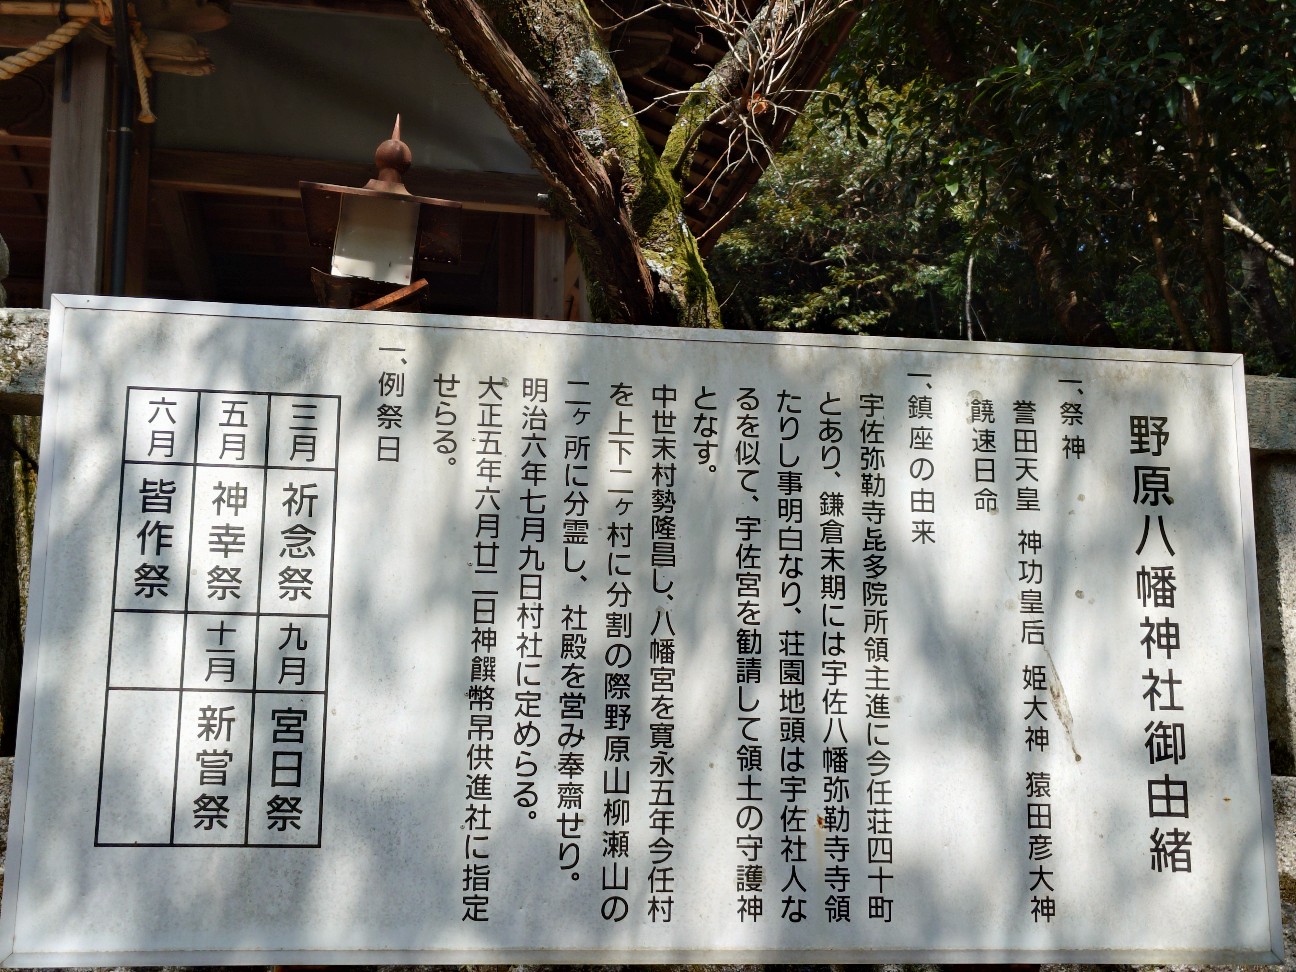 野原八幡神社御由緒
一、祭神
誉田天皇 神功皇后 姫大神 猿田彦大神
饒速日命
一、鎮座の由来
宇佐弥勒寺㐂多院所領主進に今任荘四十町
とあり、鎌倉末期には宇佐八幡弥勒寺寺領
たりし事明白なり、荘園地頭は宇佐社人な
るを似て、宇佐宮を勧請して領土の守護神
となす。
中世末村勢隆昌し、八幡宮を寛永五年今任村
を上下二ヶ村に分割の際野原山柳瀬山の
二ヶ所に分霊し、社殿を営み奉齋せり。
明治六年七月九日村社に定めらる。
大正五年六月廿二日神饌幣帛供進社に指定
せらる。
一、例祭日
三月 祈念祭 九月 宮日祭
五月 神幸祭 十一月 新嘗祭
六月 皆作祭